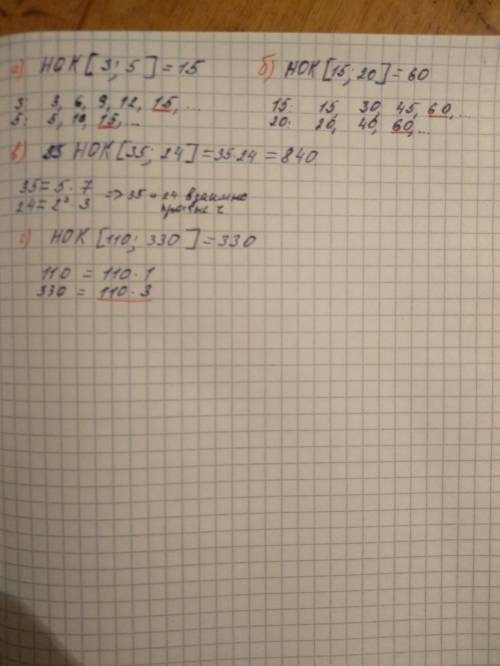 а) НОК[3; 5]=15
3: 3, 6, 9, 12, 15, ...
5: 5, 10, 15, ...
б) НОК[15; 20]=60
15: 15, 30, 45, 60, ...
20: 20, 40, 60, ...
в) НОК[35; 24]=35·24=840
35=5·7
24=2³·3 => 35 и 24 взаимно простые ч
НОК[110; 330]=330
110 = 110·1
330 = 110·3